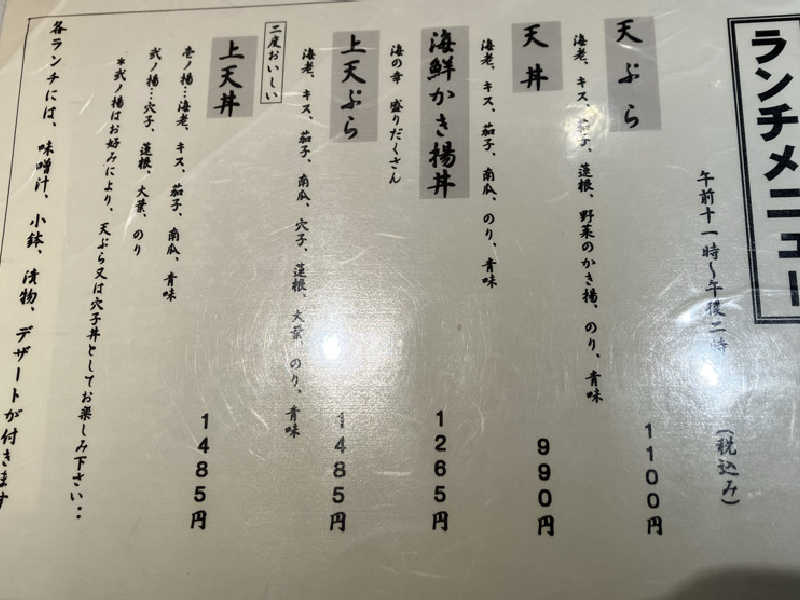 ランチメニュー
午前十一時～午後二時
(税込み)
天ぷら
1100円
海老、キス、茄子、蓮根、野菜のかき揚、のり、青味
天丼
990円
海老、キス、茄子、南瓜、のり、青味
海鮮かき揚丼
1265円
海の幸 盛りだくさん
上天ぷら
1485円
海老、キス、茄子、南瓜、穴子、蓮根、大葉、のり、青味
二度おいしい
上天丼
1485円
壱ノ揚…海老、キス、茄子、南瓜、青味
弐ノ揚…穴子、蓮根、大葉、のり
*弐ノ揚はお好みにより、天ぷら又は穴子丼としてお楽しみ下さい‥
各ランチには、味噌汁、小鉢、漬物、デザートが付きます